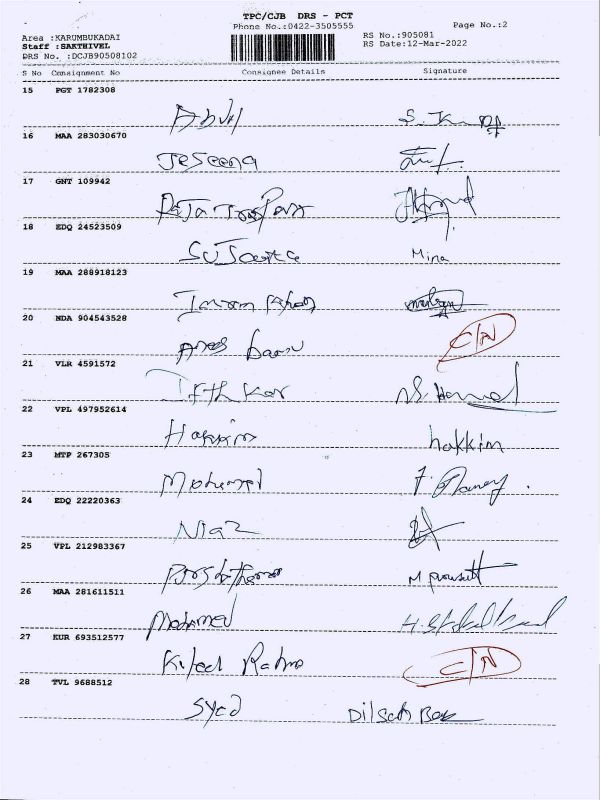 TPC/CJB DRS - PCT
Phone No.:0422-3505555 Page No.:2
Area :KARUMBUKADAI RS No.:905081
Staff :SAKTHIVEL RS Date:12-Mar-2022
DRS No. :DCJB90508102
S No Consignment No Consignee Details Signature
15 PGT 1782308
Abdul
16 MAA 283030670
Jeseena
17 GNT 109942
18 EDQ 24523509
Mina
19 MAA 288918123
Imran Khan
20 NDA 904543528
banu C/N
21 VLR 4591572
Ifthkar
22 VPL 497952614
Hakkim hakkim
23 MTP 267305
Mohamed
24 EDQ 22220363
Niaz
25 VPL 212983367
26 MAA 281611511
Mohamed
27 KUR 693512577
C/N
28 TVL 9688512
Syed